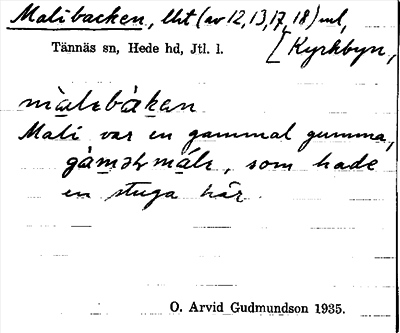 Malibacken, lht (av 12, 13, 17, 18) vid,
Tännäs sn, Hede hd, Jtl. l. [Kyrkbyn,
màlɩbàkan
Mali var en gammal gumma,
gàməʟmálɩ, som hade
en stuga här.
O. Arvid Gudmundson 1935.